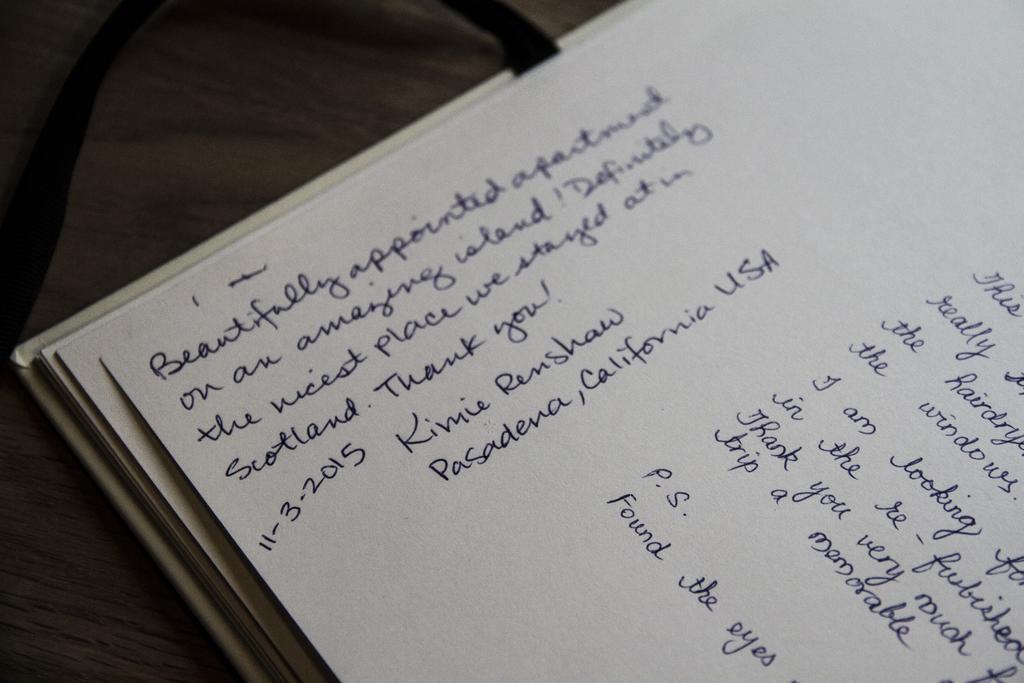 Beautifully appointed apartment
on an amazing island! Definitely
the nicest place we stayed at in
Scotland. Thank you!
11-3-2015 Kimie Renshaw
Pasadena, California USA
This
really
the hairdrye
the windows.
I am looking for
in the re-furbished
Thank you very much f
trip a memorable
P.S.
Found the eyes